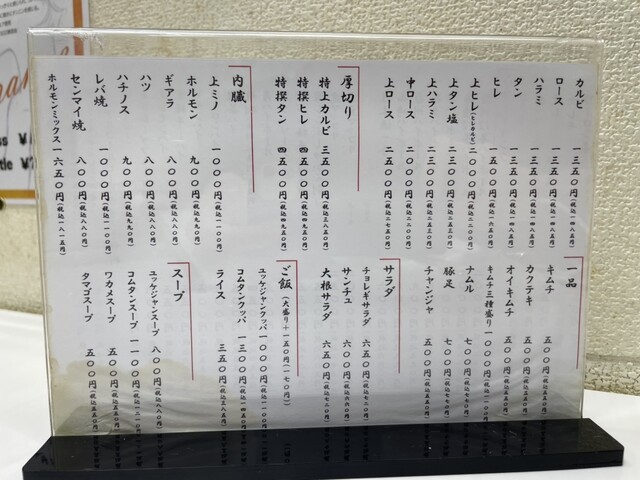 カルビ 一三五〇円(税込一四八五円)
ロース 一三五〇円(税込一四八五円)
ハラミ 一三五〇円(税込一四八五円)
タン 一三五〇円(税込一四八五円)
ヒレ 一五〇〇円(税込一六五〇円)
上ヒレ(ヒレカルビ) 二〇〇〇円(税込二二〇〇円)
上タン塩 二三〇〇円(税込二五三〇円)
上ハラミ 二三〇〇円(税込二五三〇円)
中ロース 二〇〇〇円(税込二二〇〇円)
上ロース 二五〇〇円(税込二七五〇円)
厚切り
特上カルビ 三五〇〇円(税込三八五〇円)
特撰ヒレ 四五〇〇円(税込四九五〇円)
特撰タン 四五〇〇円(税込四九五〇円)
内臓
上ミノ 一〇〇〇円(税込一一〇〇円)
ホルモン 九〇〇円(税込九九〇円)
ギアラ 八〇〇円(税込八八〇円)
ハツ 八〇〇円(税込八八〇円)
ハチノス 九〇〇円(税込九九〇円)
レバ焼 一〇〇〇円(税込一一〇〇円)
センマイ焼 八〇〇円(税込八八〇円)
ホルモンミックス 一六五〇円(税込一八一五円)
一品
キムチ 五〇〇円(税込五五〇円)
カクテキ 五〇〇円(税込五五〇円)
オイキムチ 五〇〇円(税込五五〇円)
キムチ三種盛り 一〇〇〇円(税込一一〇〇円)
ナムル 七〇〇円(税込七七〇円)
豚足 七〇〇円(税込七七〇円)
チャンジャ 五〇〇円(税込五五〇円)
サラダ
チョレギサラダ 六五〇円(税込七二〇円)
サンチュ 六〇〇円(税込六六〇円)
大根サラダ 六五〇円(税込七二〇円)
ご飯(大盛り+一五〇円(一七〇円))
ユッケジャンクッパ 一〇〇〇円(税込一一〇〇円)
コムタンクッパ 一三〇〇円(税込一四三〇円)
ライス 三五〇円
スープ
ユッケジャンスープ 八〇〇円(税込八八〇円)
コムタンスープ 一一〇〇円(税込一二一〇円)
ワカメスープ 五〇〇円(税込五五〇円)
タマゴスープ 五〇〇円(税込五五〇円)